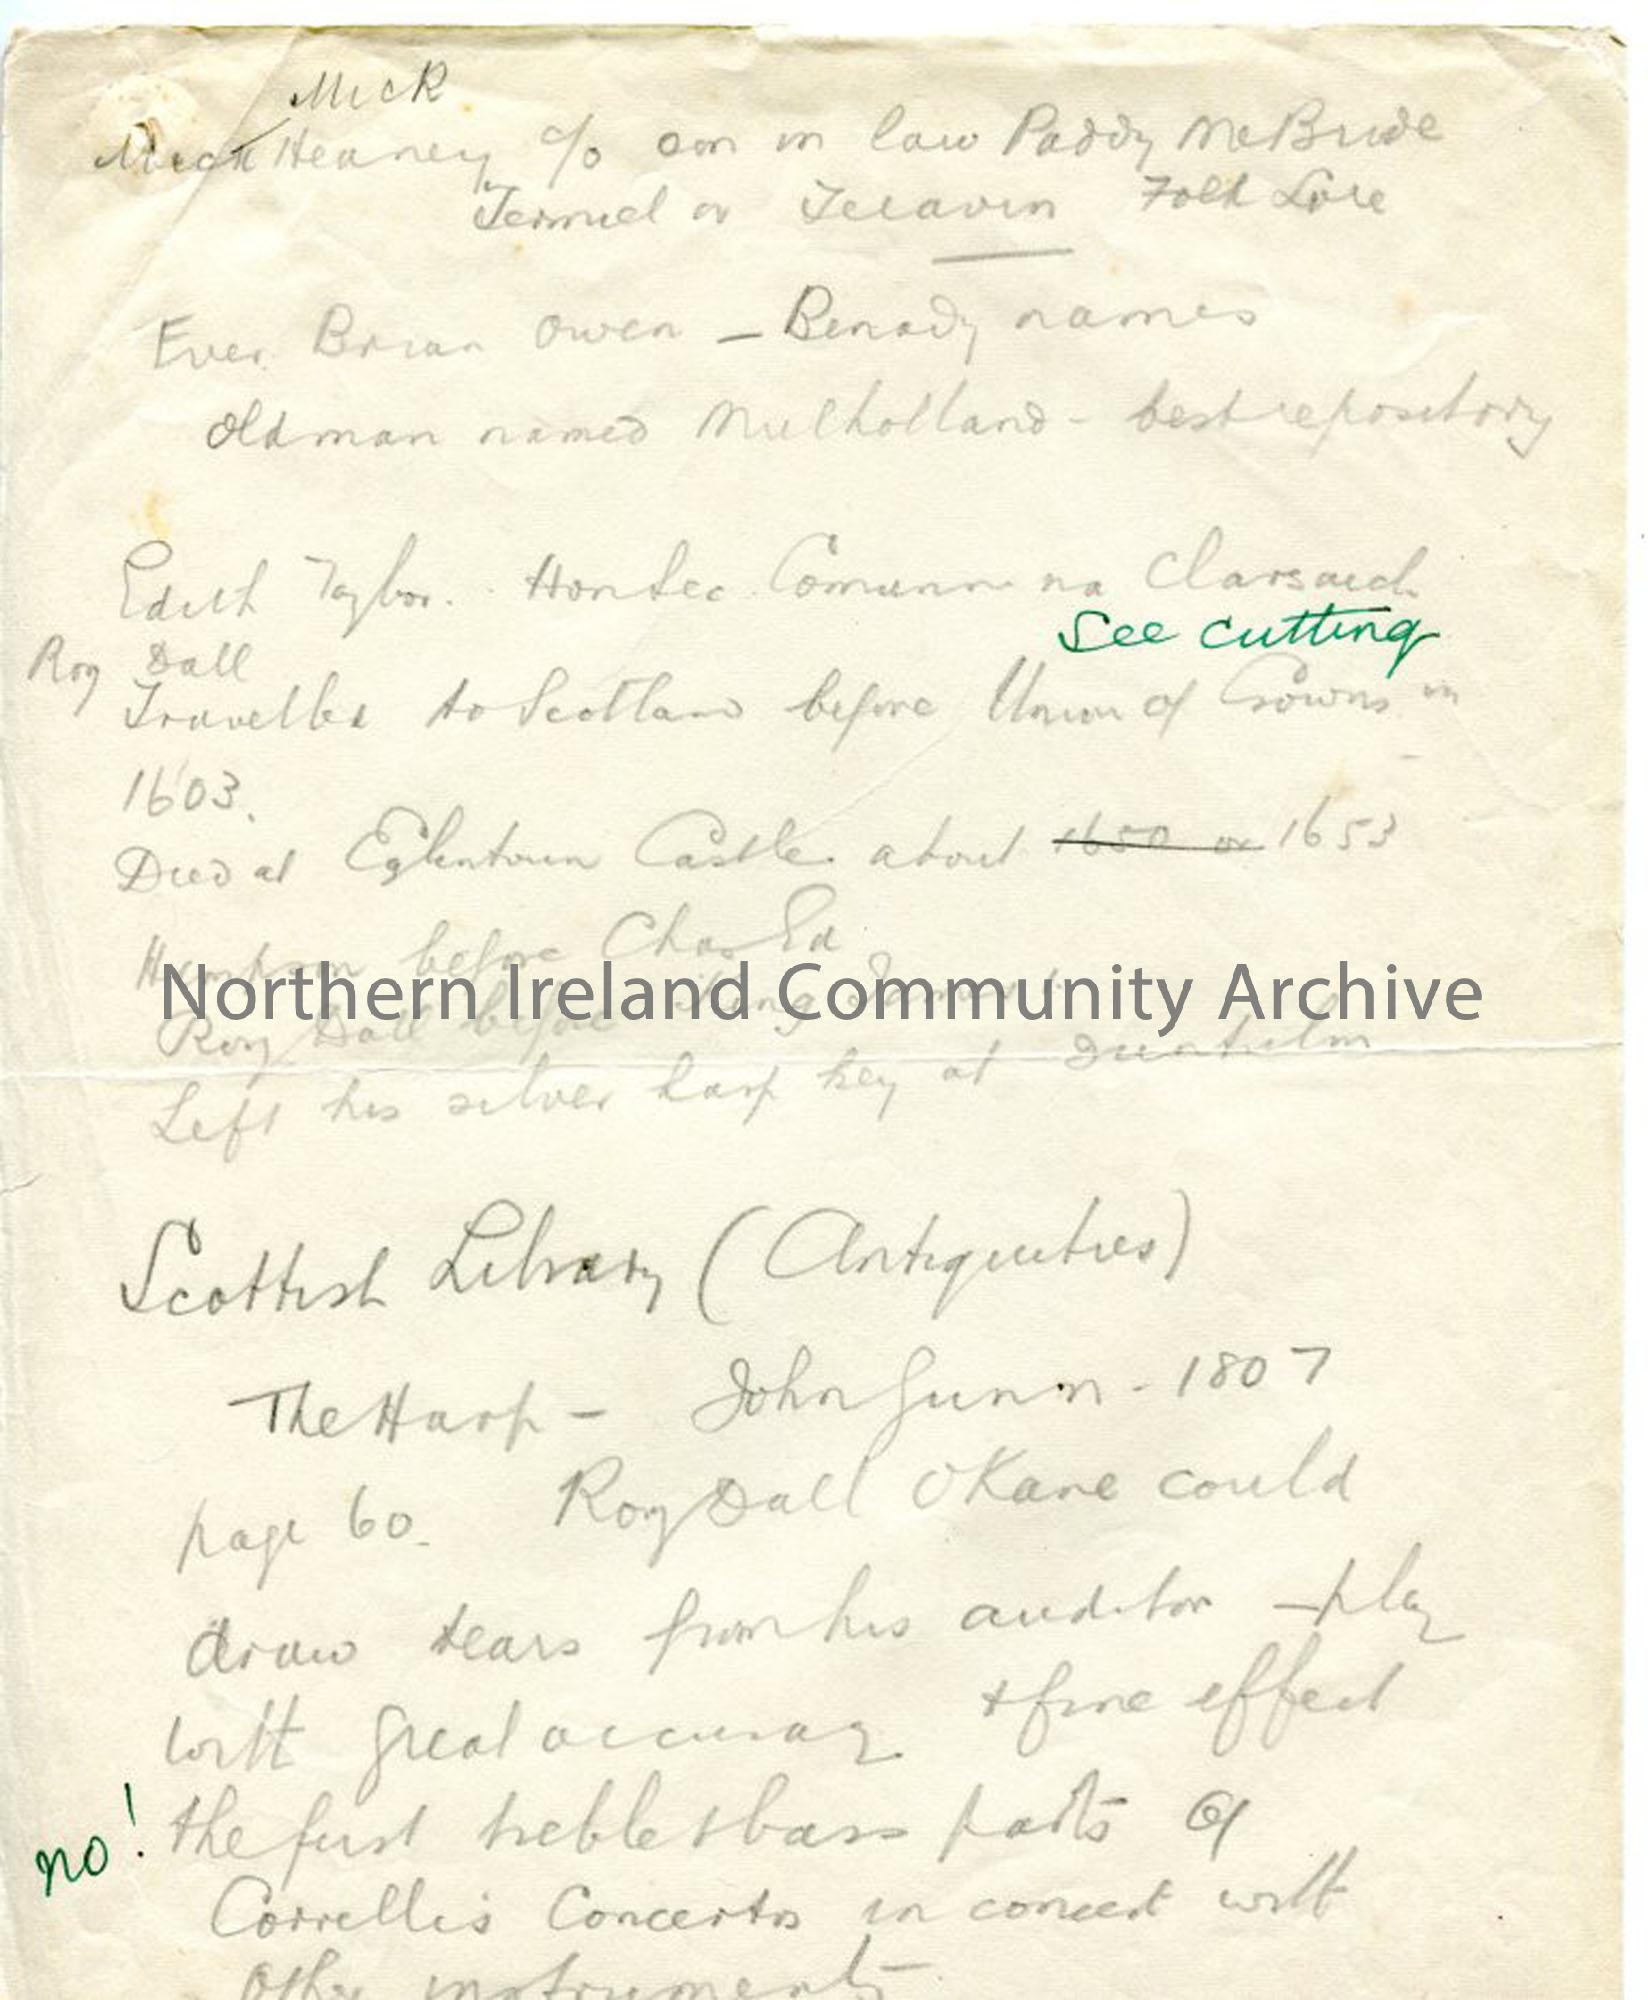 Mick
Heaney c/o son in law Paddy McBride
Termiel or Teeavin Folk Lore
Ever Brian Owen - Benady names
Old man named Mulholland - best repository
Edith Taylor. Hon Sec Comunn na Clarsaich
See cutting
Rory Dall
Travelled to Scotland before Union of Crowns in
1603.
Died at Eglintoun Castle about 1650 or 1653
Hempson before Chas Ed
Northern Ireland Community Archive
Rory Dall before King James
Left his silver harp key at
Scottish Library (Antiquities)
The Harp - John Gunn - 1807
page 60. Rory Dall O Kane could
draw tears from his auditor - play
with great accuracy + fine effect
no! the first treble + bass parts of
Correlli's Concertos in concert with
other instruments